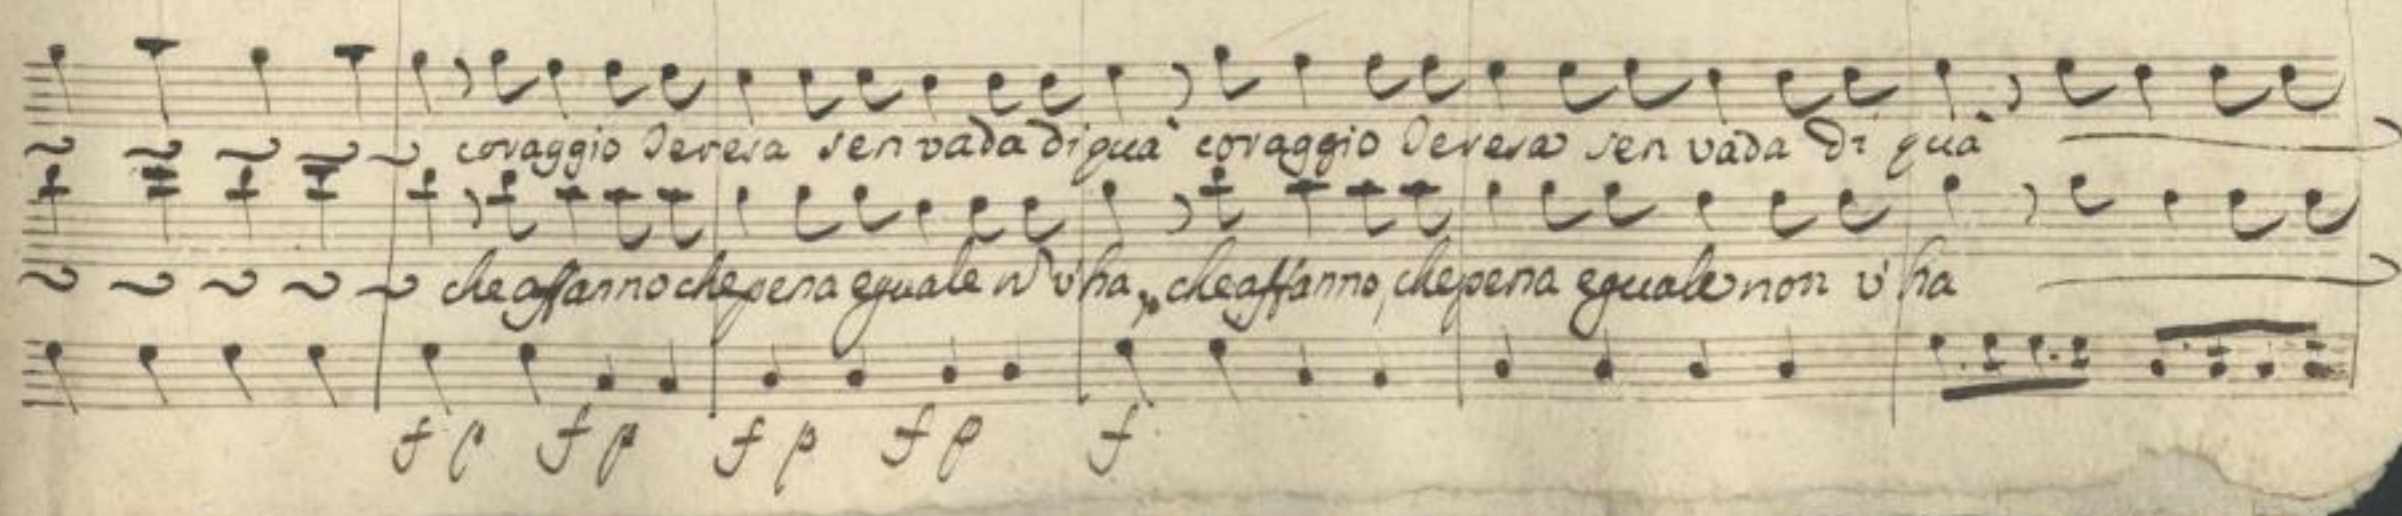 coraggio Teresa sen vada di quà coraggio Teresa sen vada di quà
che affanno che pena eguale n v'ha, che affanno, che pena eguale non v'ha
f p f p f p f p f